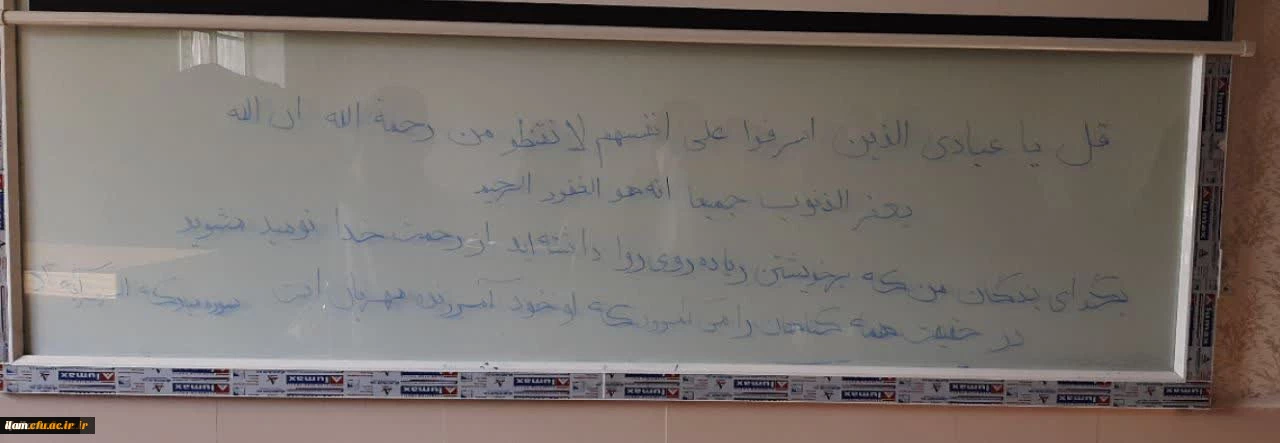 قل یا عبادی الذین اسرفوا علی انفسهم لا تقنطو من رحمة الله ان الله
یعفر الذنوب جمیعا انه هو الغفور الرحیم
بگو ای بندگان من که برخویشتن زیاده روی روا داشته اید از رحمت خدا نومید مشوید
در حقیقت همه گناهان را می آمرزد که او خود آمرزنده مهربان است سوره مبارکه آیه
Alumax
ilam.cfu.ac.ir